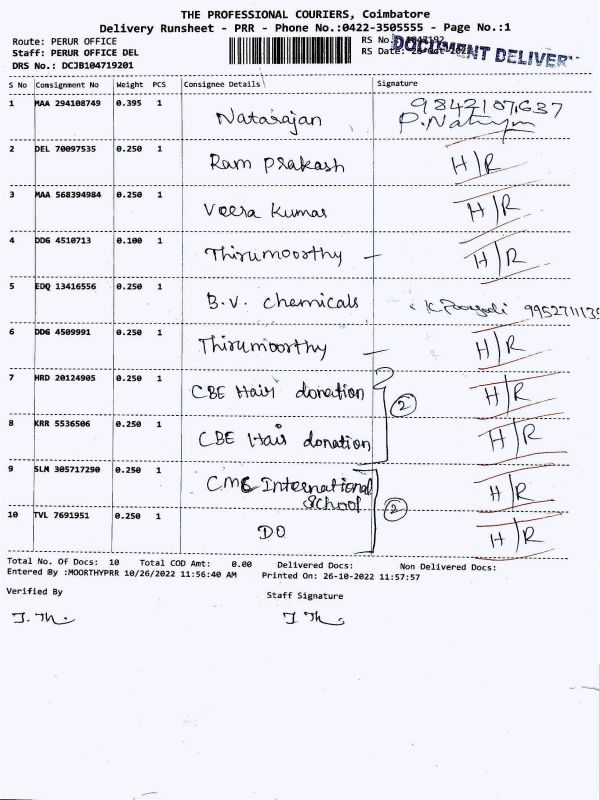 THE PROFESSIONAL COURIERS, Coimbatore
Delivery Runsheet - PRR - Phone No.:0422-3505555 - Page No.:1
Route: PERUR OFFICE
Staff: PERUR OFFICE DEL
DRS No.: DCJB104719201
RS No.
RS Date:
DOCUMENT DELIVERY
S No Consignment No Weight PCS Consignee Details Signature
1 MAA 294108749 0.395 1 Natarajan 9842107637
2 DEL 70097535 0.250 1 Ram Prakash H/R
3 MAA 568394984 0.250 1 Veera Kumar H/R
4 DDG 4510713 0.100 1 Thirumoorthy — H/R
5 EDQ 13416556 0.250 1 B.V. Chemicals 9952711135
6 DDG 4509991 0.250 1 Thirumoorthy — H/R
7 HRD 20124905 0.250 1 CBE Hair donation H/R
2
8 KRR 5536506 0.250 1 CBE Hair donation H/R
9 SLM 305717290 0.250 1 CMS International School H/R
2
10 TVL 7691951 0.250 1 DO H/R
Total No. Of Docs: 10 Total COD Amt: 0.00 Delivered Docs: Non Delivered Docs:
Entered By :MOORTHYPRR 10/26/2022 11:56:40 AM Printed On: 26-10-2022 11:57:57
Verified By Staff Signature